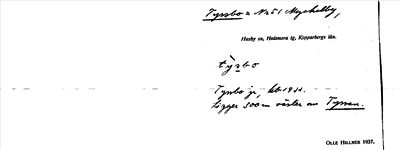 Tyssbo = No 51 Myckelby,
Husby sn, Hedemora tg, Kopparbergs län.
tỳsbo
Tysbo jr, kb 1931.
Ligger 500 m väster om Tyssen.
OLLE HILLNER 1937.